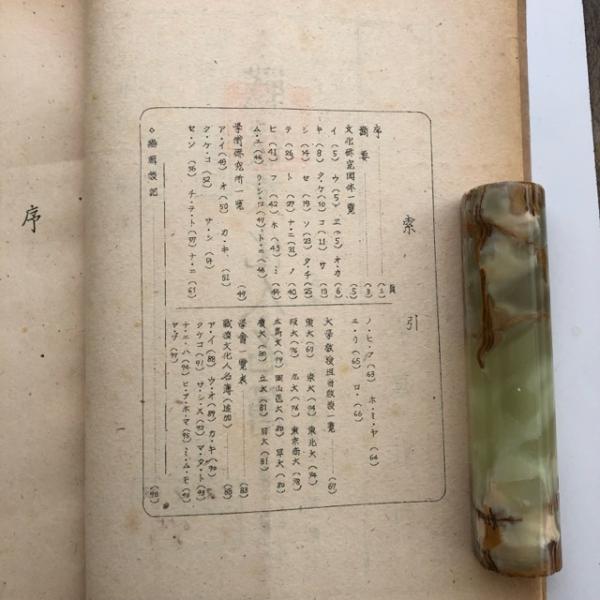 索引
頁
序 (1)
摘要 (3)
文化研究団体一覧 (5)
イ (5) ウ (5) エ (5) オ・カ (6)
キ (8) ク・ケ (10) コ (11) サ (13)
シ (14) セ (19) ソ (23) タ・チ (25)
テ (26) ト (29) ナ・ニ (31) ノ (40)
ヒ (41) フ (42) ホ (43) ミ (44)
ム・ユ (46) リ・シ・ロ (47) ト・ニ (48)
学術研究所一覧 (49)
ア・イ (49) オ (50) カ・キ (51)
ク・ケ・コ (52) サ・シ (54)
セ・ソ (56) チ・テ・ト (57) ナ・ニ (61)
ノ・ヒ・フ (63) ホ・ミ・ヤ (64)
ユ・リ (65) ロ (66)
大学教授担当教授一覧 (67)
東大 (67) 京大 (74) 東北大 (74)
阪大 (76) 九大 (76) 東京商大 (78)
広島文 (79) 岡山医大 (80) 早大 (80)
慶大 (80) 立大 (81) 日大 (81)
学会一覧表 (83)
戦没文化人名簿 (追加) (88)
ア・イ (88) ウ・オ (89) カ・キ (90)
ク・ケ・コ (91) サ・シ・ス (92) マ・タ・ト (93)
ナ・ニ・ハ (94) ヒ・フ・ホ・マ (95) ミ・ム・モ (96)
ヤ・ヲ (97)
◇編輯後記 (98)
序